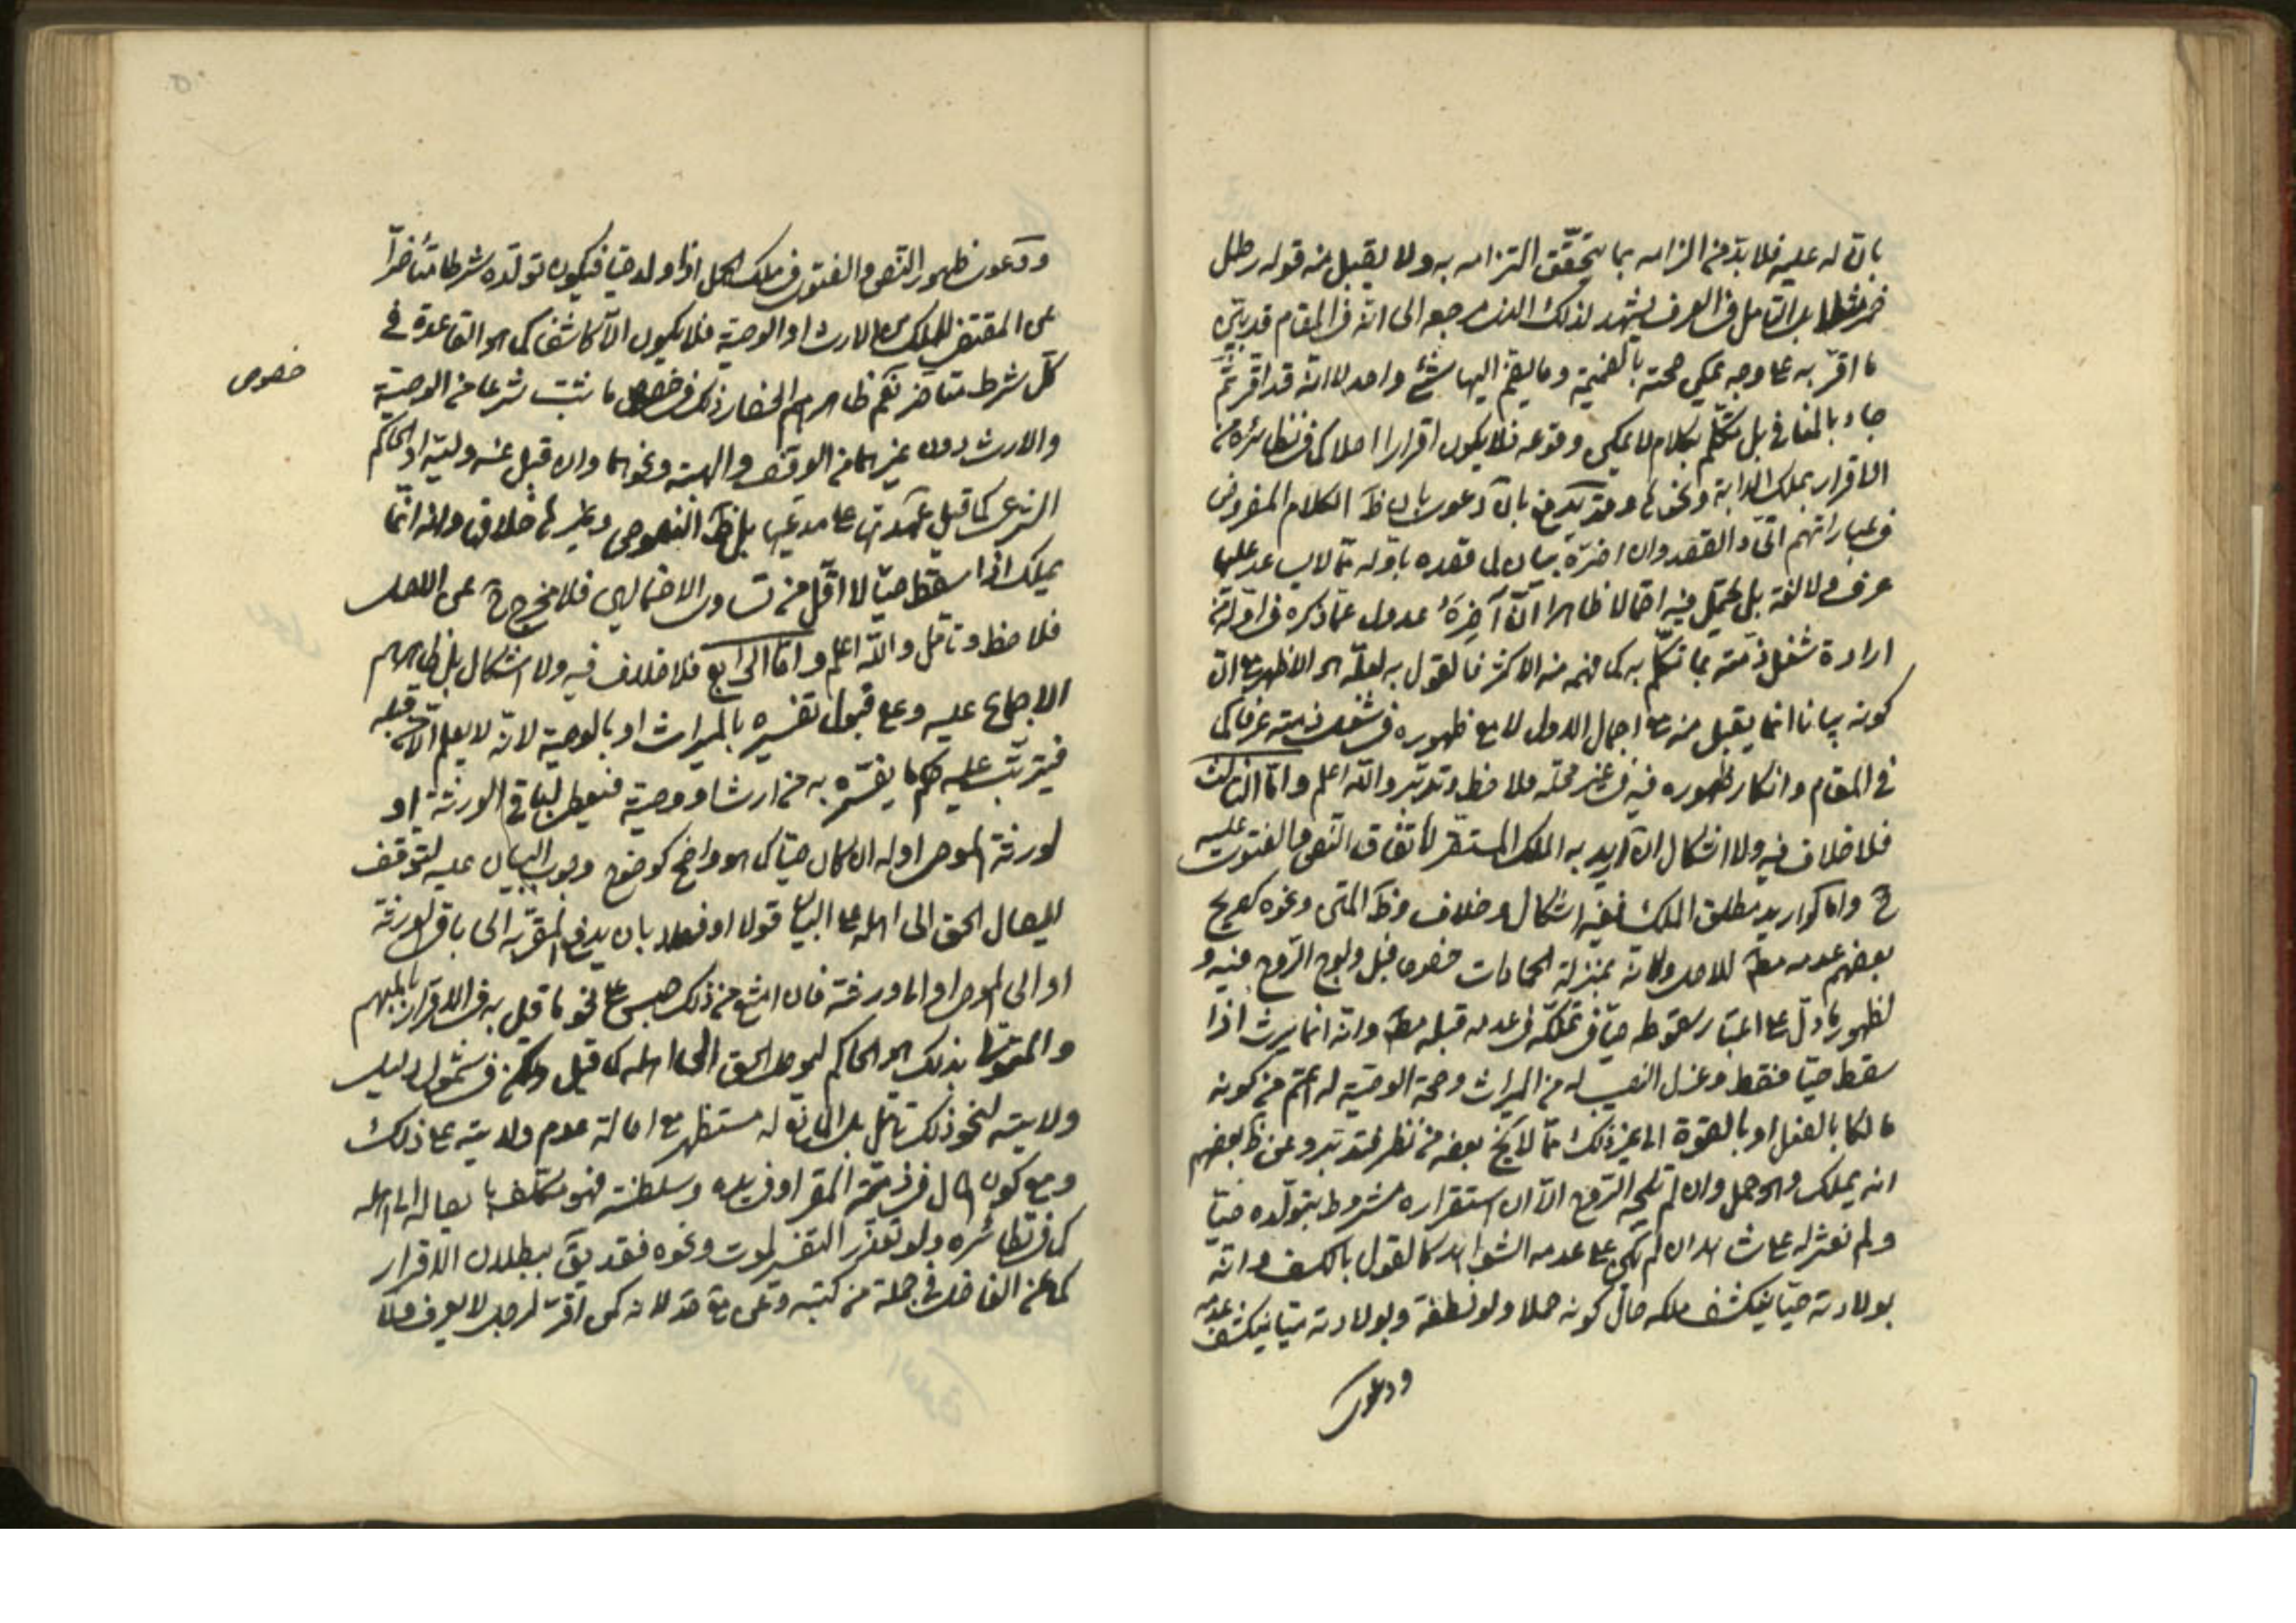 بانّ له عليه فلا بدّ من الزامه بما يتحقّق التزامه به ولا يقبل منه قوله رطل
خمر مثلا بل التأمل في العرف يشهد لذلك الذي مرجعه الى انّه في المقام قد بيّن
ما اقرّ به على وجه يمكن صحته بالضميمة وما يضمّ اليها شئ واحد لا انّه قد اقر ثمّ
جاء بالمنافي بل تكلّم بكلام لا يمكن وقوعه فلا يكون اقرارا اصلا كما في نظائره من
الاقرار بملك الدابة ونحوها وقد بانّ دعوى بان ظ الكلام المفروض
في عباراتهم اتّحاد القصد وان اخره بيان لما قصده باوله ممّا لا يساعد عليها
عرف ولا لغة بل يحتمل فيه احتمالا ظاهرا انّ آخرَهُ عدول عمّا ذكره في اوله من
ارادة شغل ذمّته بما تكلّم به كما فهمه منه الاكثر فالقول به لعلّه هو الاظهر مع ان
كونه بيانا انما يقبل منه مع اجمال الاول لا مع ظهوره في شغل ذمته عرفا كما
في المقام وانكار ظهوره فيه في غير محلّه فلاحظ وتدبّر والله اعلم وامّا الثالث
فلا خلاف فيه ولا اشكال ان اريد به الملك المستقر لاتفاق النص والفتوى عليه
ح واما لو اريد مطلق الملك ففيه اشكال وخلاف وظ المتن ونحوه كصريح
بعضهم عدمه مط للاصل ولانه بمنزلة الجمادات خصوصا قبل ولوج الرّوح فيه و
لظهور ما دلّ على اعتبار سقوطه حيّا في تملكه في عدمه قبله مط وانّه انما يرث اذا
سقط حيّا فقط وعزل النصيب له من الميراث وصحة الوصيّة له اعم من كونه
مالكا بالفعل او بالقوة الى غير ذلك ممّا لا يخ بعضه من نظر فتدبّر وعن ظ بعضهم
انه يملك وهو حمل وان لم تلجه الرّوح الّا ان استقراره مشروط بتولّده حيّا
ولم نعثر له على شاهد ان لم يكن على عدمه الشواهد كالقول بالكشف وانّه
بولادته حيّا ينكشف ملكه حال كونه حملا ولو نطفة وبولادته ميّتا ينكشف عدمه
ودعوى
ودعوى ظهور النص والفتوى في ملك الحمل اذا ولد حيّا فيكون تولّده شرطا متأخرا
عن المقتضي للملك من الارث او الوصية فلا يكون الّا كاشفا كما هو القاعدة في
كلّ شرط متأخر نعم ظاهرهم انحصار ذلك في خصوص ما ثبت شرعا من الوصية
خصوص
والارث دون غيرهما من الوقف والهبة ونحوهما وان قبل عنه وليّه او الحاكم
الشرعي كما قيل عهدتها على مدعيها بل ظ النصوص وغيرها خلافه وانه انّما
يملك اذا سقط حيّا لا اقلّ من تساوي الاحتمالين فلا مخرج ح عن الاصل
فلاحظ وتأمّل والله اعلم وامّا الرابع فلا خلاف فيه ولا اشكال بل ظاهرهم
الاجماع عليه وعلى قبول تفسيره بالميراث او بالوصية لانّه لا يعلم الّا من قبله
فيترتّب عليه حكم ما يفسّره به من ارث او وصية فيعطى لباقي الورثة او
لورثة الموصي او له ان كان حيّا كما هو واضح كوضوح وجوب البيان عليه لتوقف
ايصال الحق الى اهله على البيان قولا او فعلا بان يدفع المقرّ به الى باقي الورثة
او الى الموصي او الى ورثته فان امتنع من ذلك حبس على نحو ما قيل به في الاقرار بالمبهم
والمتولّي بذلك هو الحاكم ليوصل الحق الى اهله كما قيل ولكن في شمول دليل
ولايته لنحو ذلك تأمّل بل مستظهر مع اصالة عدم ولايته على ذلك
ومع كون المال في ذمّة المقر او في يده وسلطنته فهو مكلّف بايصاله الى اهله
كما في نظائره ولو تعذّر التفسير لموت ونحوه فقد يق ببطلان الاقرار
كما عن الفاضل في جملة من كتبه وعن لانه كمن اقرّ لرجل لا يعرف